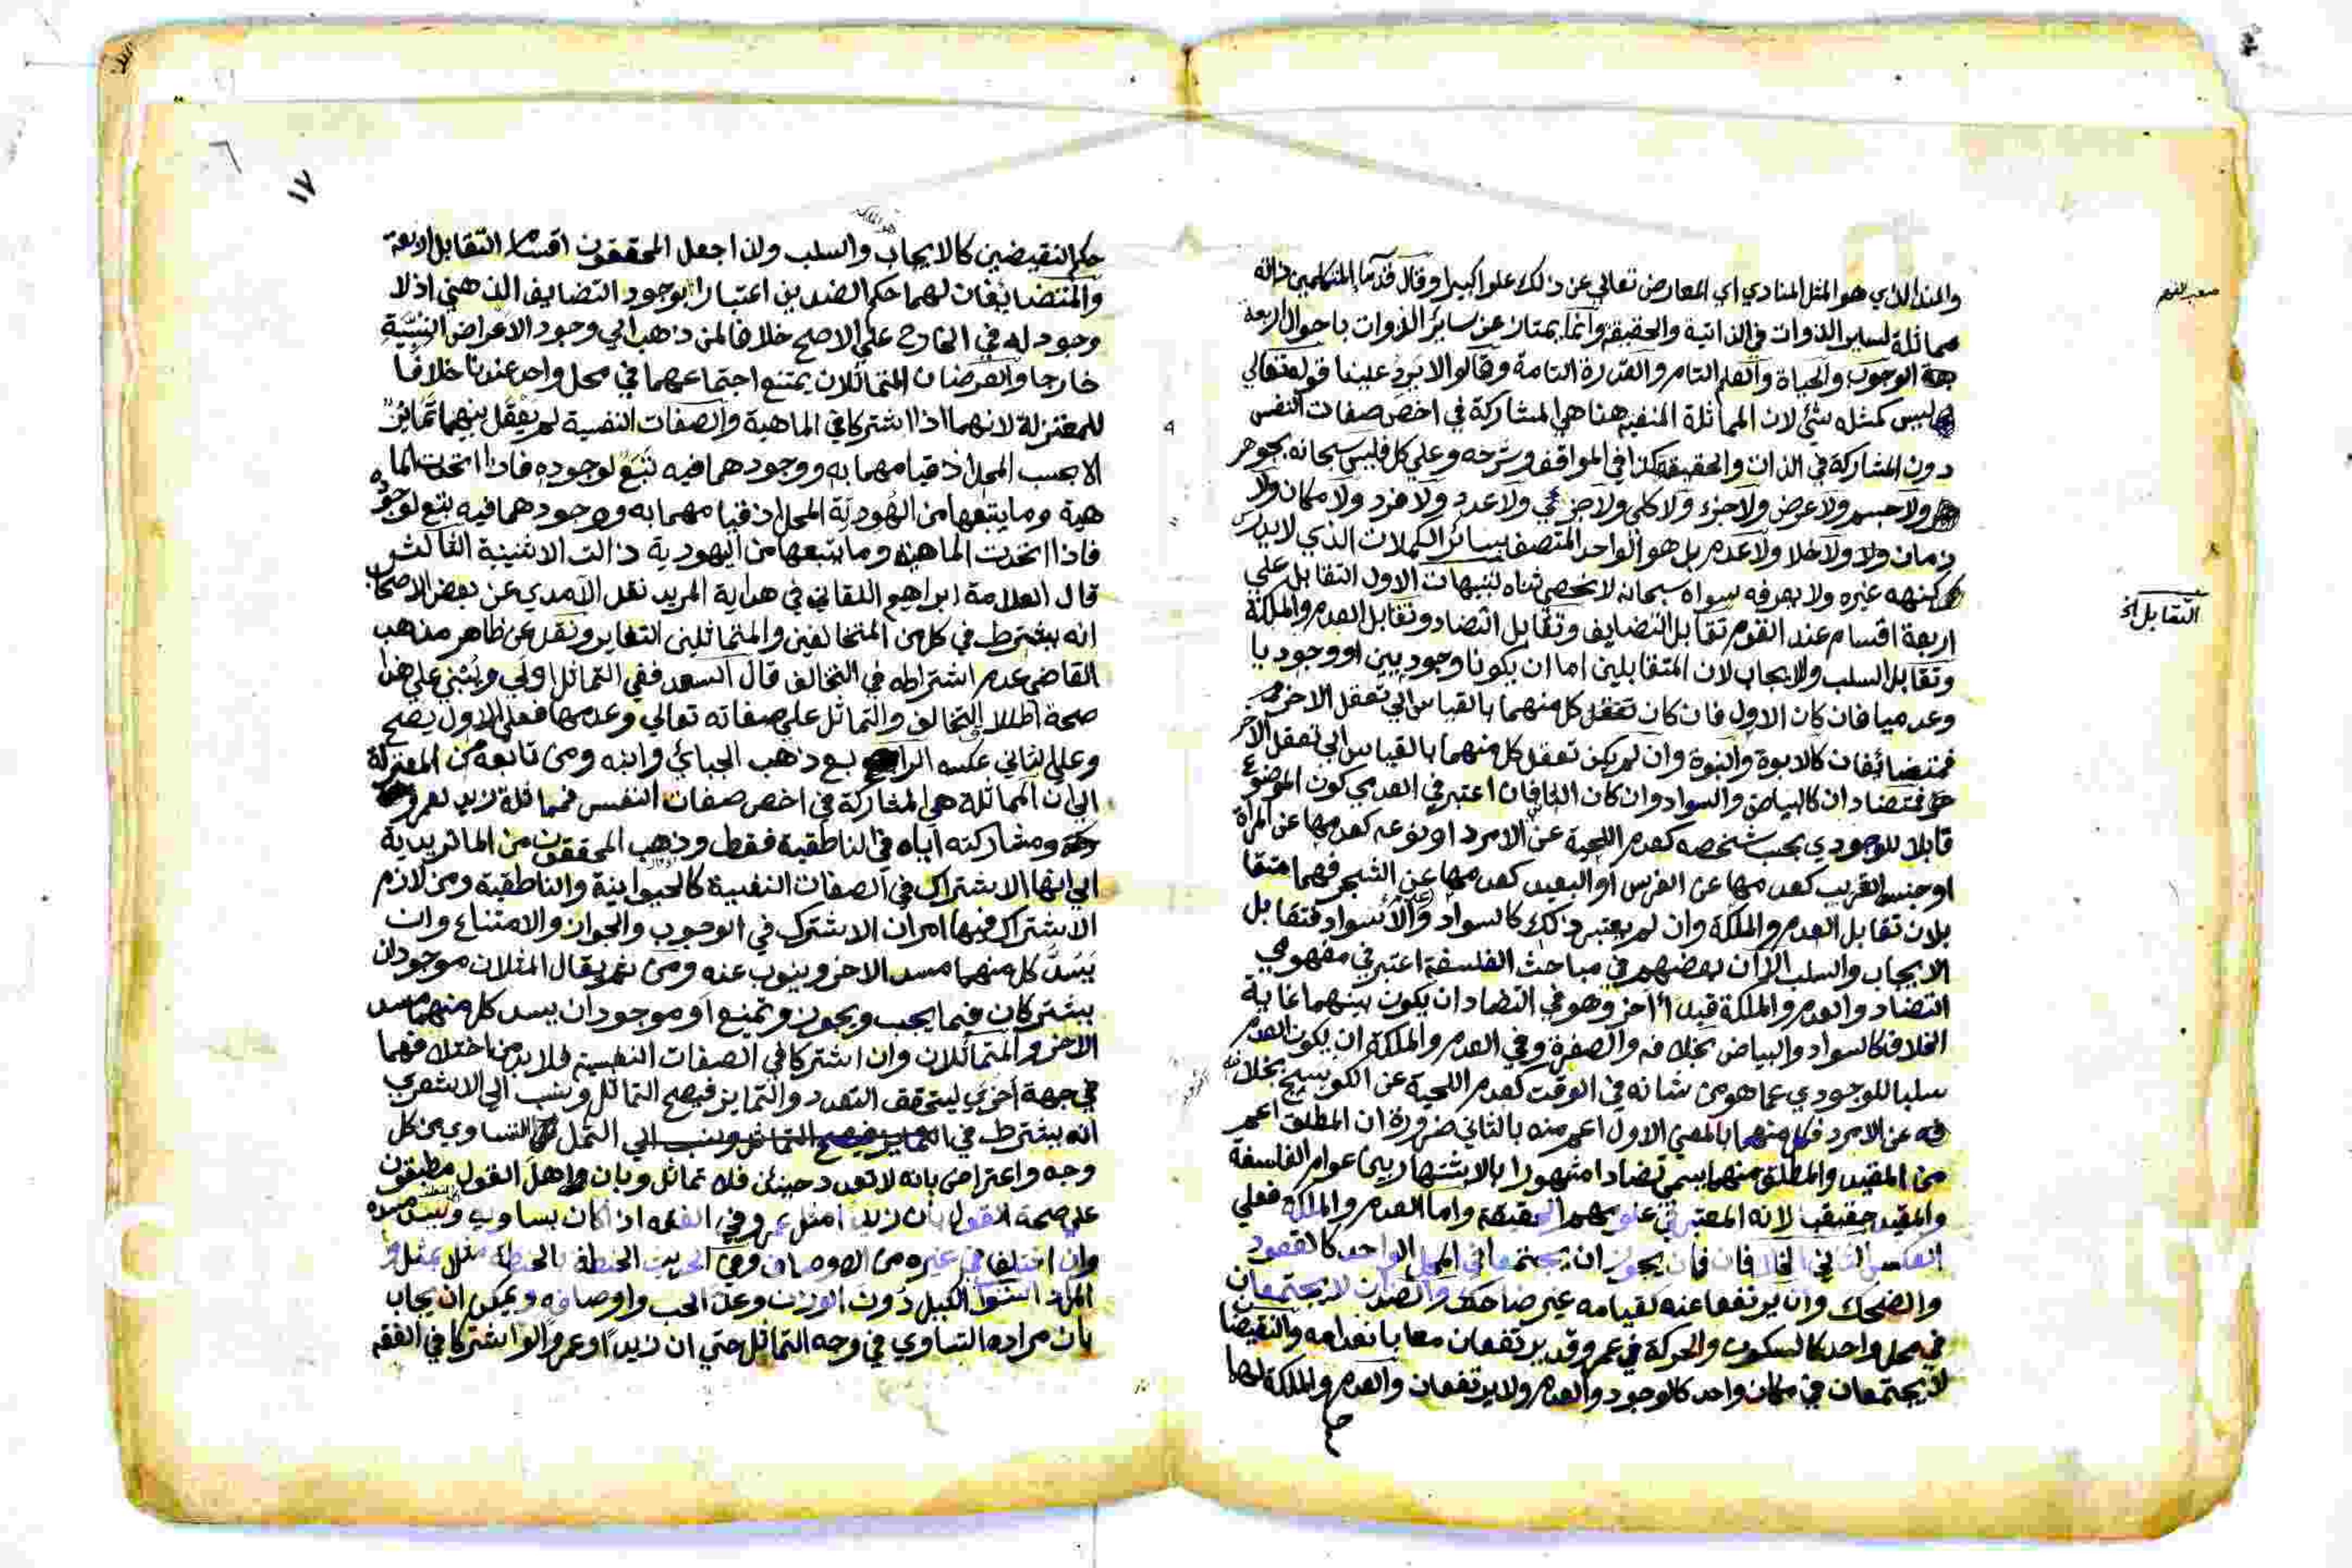 والند الذي هو المثل المنادي اي المعارض تعالي عن ذلك علوا كبيرا وقال قدما المتكلمين ذاته
مماثلة لساير الذوات في الذاتية والحقيقة وانما يمتاز عن ساير الذوات باحوال اربعة
الوجوب والحياة والعلم التام والقدرة التامة وقالوا لا يرد علينا قوله تعالي
ليس كمثله شئ لان المماثلة المنفية هنا هي المشاركة في اخص صفات النفس
دون المشاركة في الذات والحقيقة كذا في المواقف وشرحه وعلي كل فليس سبحانه بجوهر
ولا جسم ولا عرض ولا جزء ولا كلي ولا جزئي ولا عدد ولا فرد ولا مكان ولا
زمان ولا ولا خلا ولا عدم بل هو الواحد المتصف بسائر الكمالات الذي لا يدرك
كنهه غيره ولا يعرفه سواه سبحانه لا نحصي ثناه تنبيهات الاول التقابل علي
اربعة اقسام عند القوم تقابل التضايف وتقابل التضاد وتقابل العدم والملكة
وتقابل السلب والايجاب لان المتقابلين اما ان يكونا وجوديين او وجوديا
وعدميا فان كان الاول فان كان تعقل كل منهما بالقياس الي تعقل الاخر
فمتضائفان كالابوة والبنوة وان لم يكن تعقل كل منهما بالقياس الي تعقل الاخر
فمتضادان كالبياض والسواد وان كان الثاني فان اعتبر في العدمي كون الموضوع
قابلا للوجودي بحسب شخصه كعدم اللحية عن الامرد او نوعه كعدمها عن المراة
او جنسه القريب كعدمها عن الفرس او البعيد كعدمها عن الشجر فهما متقا
بلان تقابل العدم والملكة وان لم يعتبر ذلك كالسواد والاسواد فتقابل
الايجاب والسلب الا ان بعضهم في مباحث الفلسفة اعتبر في مفهومي
التضاد والعدم والملكة قيدا اخر وهو في التضاد ان يكون بينهما غاية
الخلاف كالسواد والبياض بخلافه والصفرة وفي العدم والملكة ان يكون العدم
سلبا للوجودي عما هو من شانه في الوقت كعدم اللحية عن الكوسج بخلا
فه عن الامرد فكل منهما بالمعني الاول اعم منه بالثاني ضرورة ان المطلق اعم
من المقيد والمطلق منهما يسمي تضادا مشهورا بالاشتهار بين عوام الفلاسفة
والمقيد حقيقيا لانه المعتبر في علومهم الحقيقة واما العدم والملكة فعلي
العكس الثاني الخلافان يجوز ان يجتمعا في المحل الواحد كالقعود
والضحك وان يرتفعا عنه لقيامه غير ضاحك والضدان لا يجتمعان
في محل واحد كالسكون والحركة في عمرو وقد يرتفعان معا بانعدامه والنقيضا
لا يجتمعان في مكان واحد كالوجود والعدم ولا يرتفعان والعدم والملكة لهما
التقابل الخ
١٧
حكم النقيضين كالايجاب والسلب ولذا جعل المحققون اقسام التقابل اربعة
والمتضايفان لهما حكم الضدين اعتبارا بوجود التضايف الذهني اذ لا
وجود له في الخارج علي الاصح خلافا لمن ذهب الي وجود الاعراض النسبية
خارجا والعرضان المتماثلان يمتنع اجتماعهما في محل واحد عندنا خلافا
للمعتزلة لانهما اذا اشتركا في الماهية والصفات النفسية لم يعقل بينهما تمايز
الا بحسب المحل اذ قيامهما به ووجودهما فيه تبع لوجوده فاذا اتحدت الما
هية وما يتبعها من الهودية المحل اذ قيامهما به ووجودهما فيه يتبع لوجوده
فاذا اتحدت الماهية وما يتبعها من اليهودية ذالت الاثنينية الثالث
قال العلامة ابراهيم اللقاني في هداية المريد نقل الآمدي عن بعض الاصحاب
انه يشترط في كل من المتخالفين والمتماثلين التغاير ونقل عن ظاهر مذهب
القاضي عدم اشتراطه في التخالف قال السعد ففي التماثل اولي ويبتني علي هذا
صحة اطلاق التخالف والتماثل علي صفاته تعالي وعدمها فعلي الاول يصح
وعلي الثاني عكسه الرابع ذهب الجبائي وابنه ومن تابعه من المعتزلة
الي ان المماثلة هي المشاركة في اخص صفات النفس فمماثلة زيد لعمرو
ومشاركته اياه في الناطقية فقط وذهب المحققون من الماتريدية
الي انها الاشتراك في الصفات النفسية كالحيوانية والناطقية ومن لازم
الاشتراك فيها امران الاشترك في الوجوب والجواز والامتناع وان
يسد كل منهما مسد الاخر وينوب عنه ومن ثم يقال المثلان موجودان
يشتركان فيما يجب ويجوز ويمتنع او موجودان يسد كل منهما مسد
الاخر والمتماثلان وان اشتركا في الصفات النفسية فلا بد من اختلافهما
في جهة اخري ليتحقق التعدد والتمايز فيصح التماثل ونسب الي الاشعري
انه يشترط في التماثل التساوي من كل
وجه واعترض بانه لا تعدد حينئذ فلا تماثل وبان اهل القول مطبقون
علي صحة القول بان زيدا مثل عمرو في الفقه اذا كان يساويه ويسد مسده
وان اختلفا في غيره من الاوصاف وفي الحديث الحنطة بالحنطة مثل بمثل و
المراد استوا الكيل دون الوزن وعدد الحب واوصافه ويمكن ان يجاب
بان مراده التساوي في وجه التماثل حتي ان زيدا وعمروا لو اشتركا في الفقه